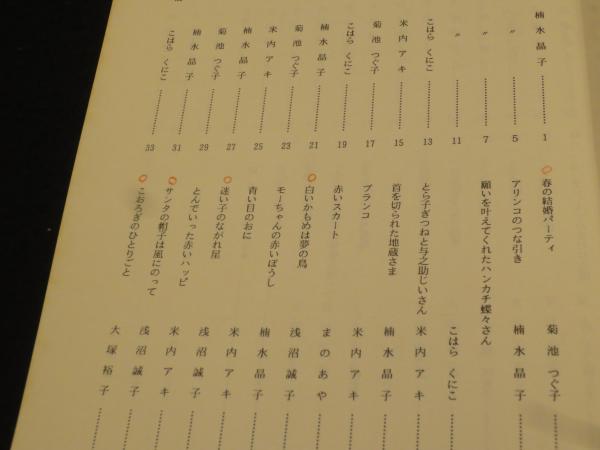 楠水晶子……………1
〃……………5
〃……………7
〃……………11
こはらくにこ……………13
米内アキ……………15
菊池つぐ子……………17
こはらくにこ……………19
楠水晶子……………21
菊池つぐ子……………23
米内アキ……………25
楠水晶子……………27
菊池つぐ子……………29
楠水晶子……………31
こはらくにこ……………33
春の結婚パーティ 菊池つぐ子……
アリンコのつな引き 楠水晶子……
願いを叶えてくれたハンカチ蝶々さん こはらくにこ……
とら子ぎつねと与之助じいさん 米内アキ……
首を切られた地蔵さま 楠水晶子……
ブランコ 米内アキ……
赤いスカート まのあや……
白いかもめは夢の鳥 浅沼誠子……
モーちゃんの赤いぼうし 楠水晶子……
青い目のおに 米内アキ……
迷い子のながれ星 浅沼誠子……
とんでいった赤いハッピ 米内アキ……
サンタの帽子は風にのって 浅沼誠子……
こおろぎのひとりごと 大塚裕子……